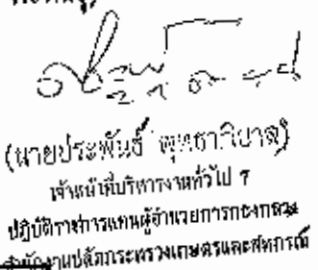 (นายประพันธ์ พุทธาภิบาล)
เจ้าหน้าที่บริหารงานทั่วไป ๗
ปฏิบัติราชการแทนผู้อำนวยการกองกลาง
สำนักงานปลัดกระทรวงเกษตรและสหกรณ์